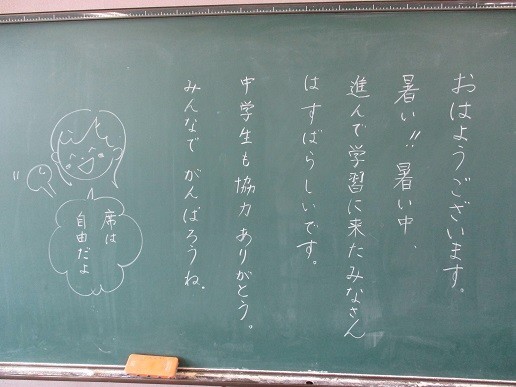 おはようございます。
暑い!!暑い中、
進んで学習に来たみなさん
はすばらしいです。
中学生も協力ありがとう。
みんなで がんばろうね。
席は
自由だよ